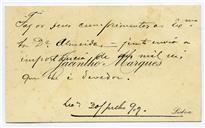 Faz os seus cumprimentos ao Ex.mo
Sr. Dr. Almeida — junto envia a
importancia de dez mil reis
Jacintho Marques
que lhe é devedor.
20 Julho 97.
Lisboa